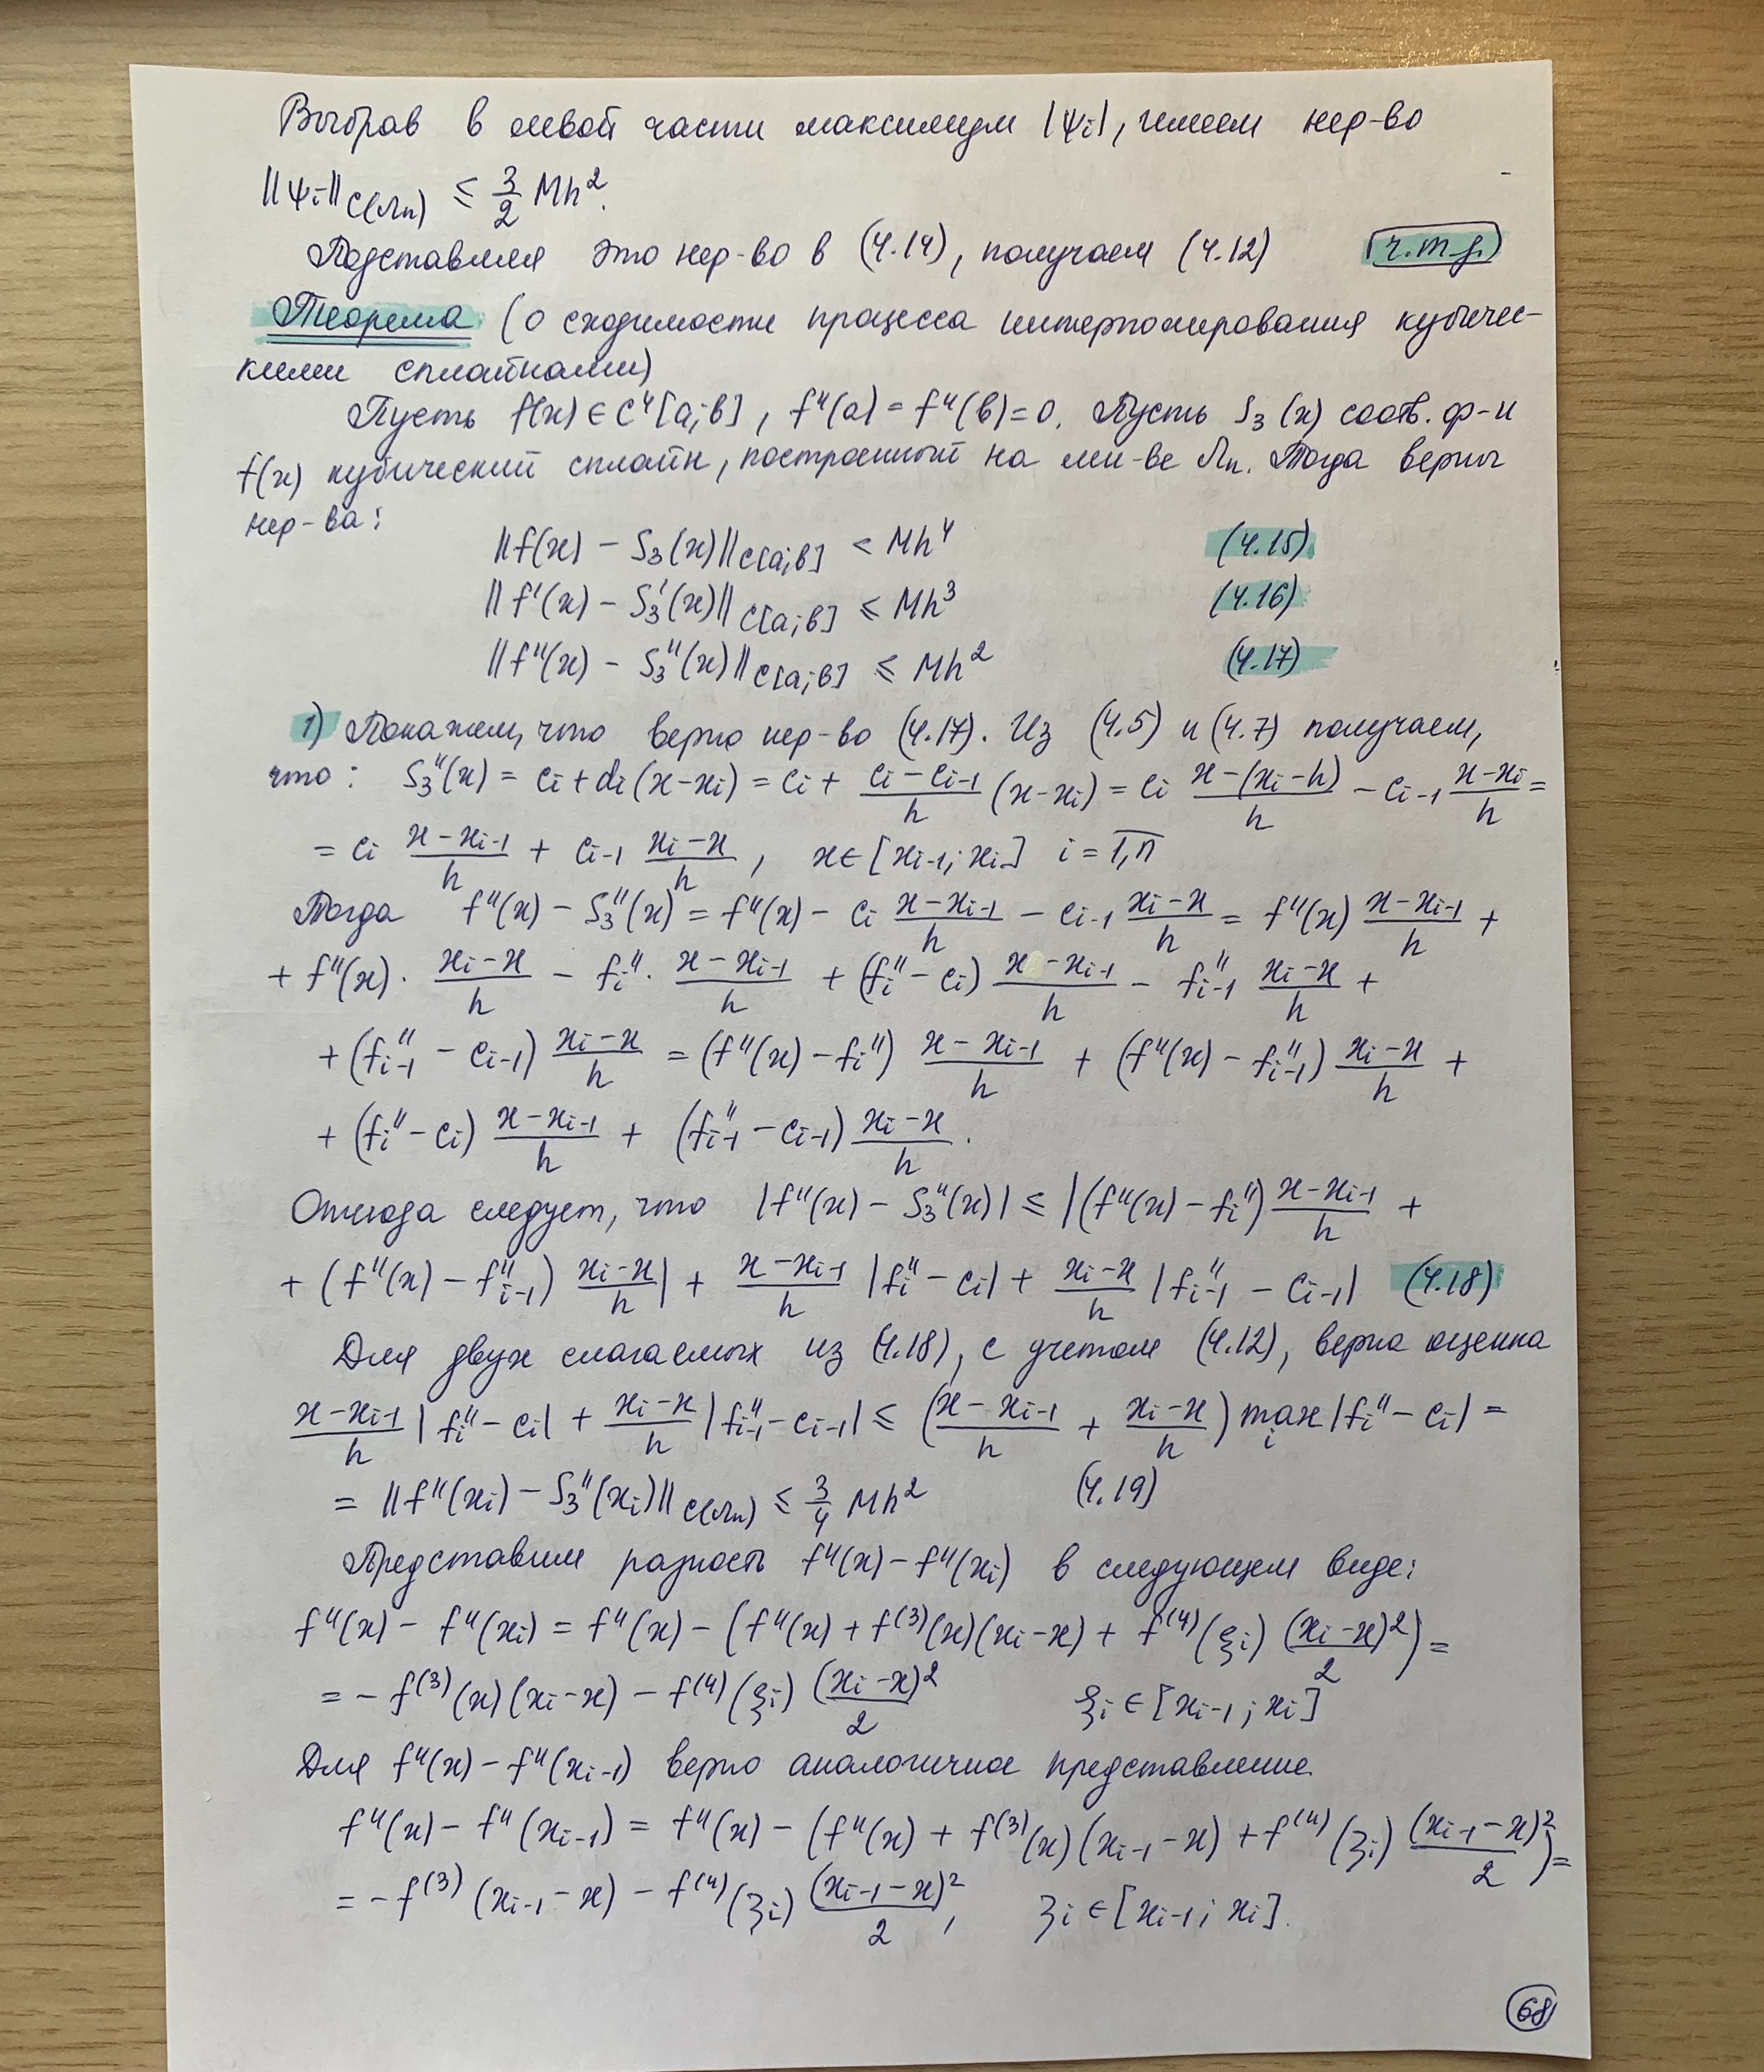 Выбрав в левой части максимум |ψi|, имеем нер-во
||ψi||C(Ωn) ≤ 3/2 Mh².
Подставляя это нер-во в (4.14), получаем (4.12) ч.т.д.
Теорема (о сходимости процесса интерполирования кубичес-
кими сплайнами)
Пусть f(x) ∈ C⁴[a;b], f''(a) = f''(b) = 0. Пусть S₃(x) соотв. ф-и
f(x) кубический сплайн, построенный на мн-ве Ωn. Тогда верны
нер-ва:
||f(x) − S₃(x)||C[a;b] < Mh⁴ (4.15)
||f'(x) − S₃'(x)||C[a;b] ≤ Mh³ (4.16)
||f''(x) − S₃''(x)||C[a;b] ≤ Mh² (4.17)
1) Покажем, что верно нер-во (4.17). Из (4.5) и (4.7) получаем,
что: S₃''(x) = ci + di(x−xi) = ci + (ci − ci-1)/h (x−xi) = ci (x−(xi−h))/h − ci-1 (x−xi)/h =
= ci (x−xi-1)/h + ci-1 (xi−x)/h, x ∈ [xi-1; xi] i = 1,n
Тогда f''(x) − S₃''(x) = f''(x) − ci (x−xi-1)/h − ci-1 (xi−x)/h = f''(x) (x−xi-1)/h +
+ f''(x) · (xi−x)/h − fi'' · (x−xi-1)/h + (fi''−ci) (x−xi-1)/h − fi-1'' (xi−x)/h +
+ (fi-1'' − ci-1) (xi−x)/h = (f''(x) − fi'') (x−xi-1)/h + (f''(x) − fi-1'') (xi−x)/h +
+ (fi''−ci) (x−xi-1)/h + (fi-1''−ci-1) (xi−x)/h.
Отсюда следует, что |f''(x) − S₃''(x)| ≤ |(f''(x) − fi'') (x−xi-1)/h +
+ (f''(x) − fi-1'') (xi−x)/h| + (x−xi-1)/h |fi''−ci| + (xi−x)/h |fi-1'' − ci-1| (4.18)
Для двух слагаемых из (4.18), с учетом (4.12), верна оценка
(x−xi-1)/h |fi''−ci| + (xi−x)/h |fi-1''−ci-1| ≤ ((x−xi-1)/h + (xi−x)/h) max i |fi''−ci| =
= ||f''(xi) − S₃''(xi)||C(Ωn) ≤ 3/4 Mh² (4.19)
Представим разность f''(x) − f''(xi) в следующем виде:
f''(x) − f''(xi) = f''(x) − (f''(x) + f⁽³⁾(x)(xi−x) + f⁽⁴⁾(ξi) (xi−x)²/2) =
= − f⁽³⁾(x)(xi−x) − f⁽⁴⁾(ξi) (xi−x)²/2 ξi ∈ [xi-1; xi]
Для f''(x) − f''(xi-1) верно аналогичное представление.
f''(x) − f''(xi-1) = f''(x) − (f''(x) + f⁽³⁾(x)(xi-1−x) + f⁽⁴⁾(ζi) (xi-1−x)²/2) =
= − f⁽³⁾(xi-1−x) − f⁽⁴⁾(ζi) (xi-1−x)²/2, ζi ∈ [xi-1; xi].
68